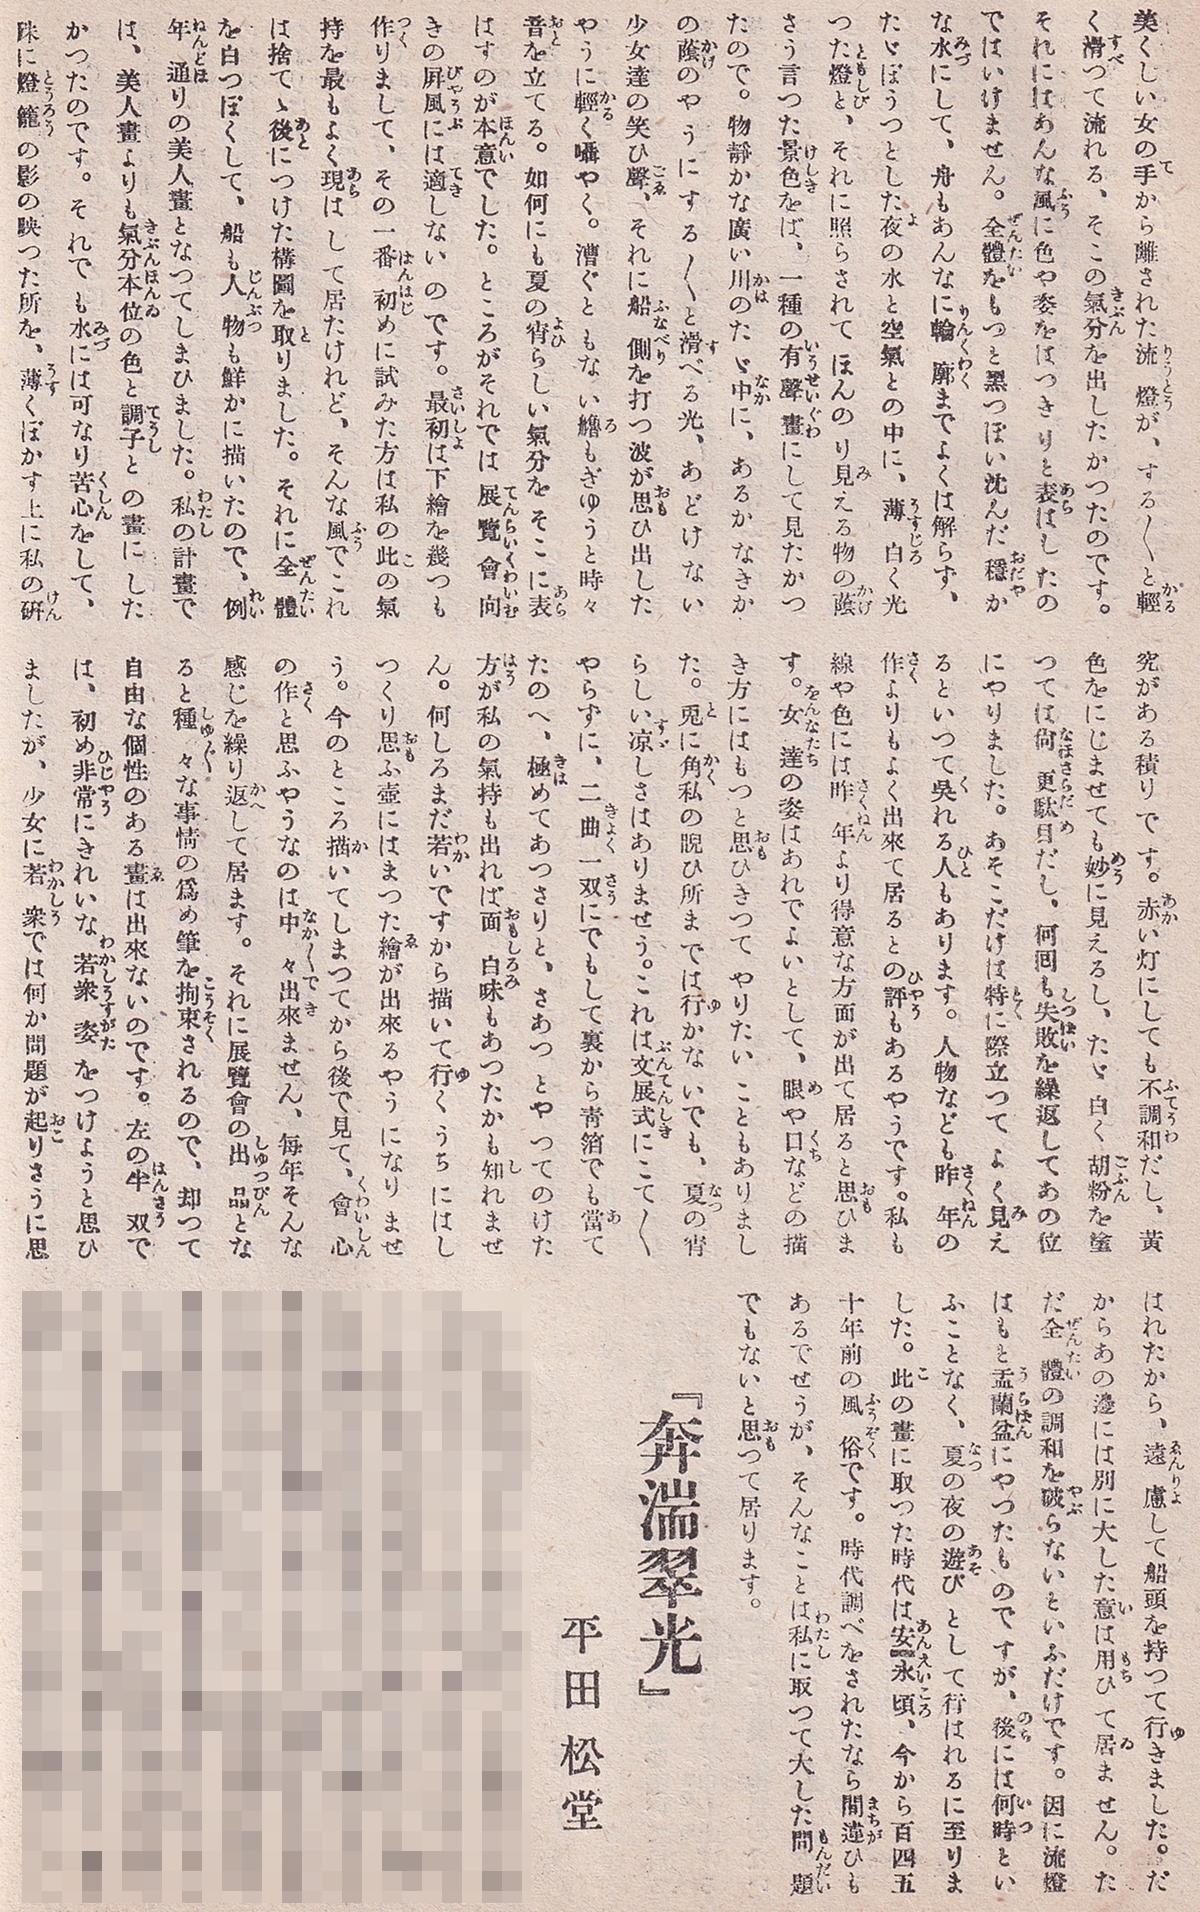 美くしい女の手から離された流燈が、する〱と輕
く滑つて流れる、そこの氣分を出したかつたのです。
それにはあんな風に色や姿をはつきりと表はしたの
ではいけません。全體をもつと黑つぽい沈んだ穩か
な水にして、舟もあんなに輪廓までよくは解らず、
たゞぼうつとした夜の水と空氣との中に、薄白く光
つた燈と、それに照らされてほんのり見える物の蔭
さう言つた景色をば、一種の有聲畫にして見たかつ
たので。物靜かな廣い川のたゞ中に、あるかなきか
の蔭のやうにする〱と滑べる光、あどけない
少女達の笑ひ聲、それに船側を打つ波が思ひ出した
やうに輕く囁やく。漕ぐともない艪もぎゆうと時々
音を立てる。如何にも夏の宵らしい氣分をそこに表
はすのが本意でした。ところがそれでは展覽會向
きの屛風には適しないのです。最初は下繪を幾つも
作りまして、その一番初めに試みた方は私の此の氣
持を最もよく現はして居たけれど、そんな風でこれ
は捨てゝ後につけた構圖を取りました。それに全體
を白つぽくして、船も人物も鮮かに描いたので、例
年通りの美人畫となつてしまひました。私の計畫で
は、美人畫よりも氣分本位の色と調子との畫にした
かつたのです。それでも水には可なり苦心をして、
殊に燈籠の影の映つた所を、薄くぼかす上に私の硏
究がある積りです。赤い灯にしても不調和だし、黃
色をにじませても妙に見えるし、たゞ白く胡粉を塗
つては尙更駄目だし、何囘も失敗を繰返してあの位
にやりました。あそこだけは特に際立つてよく見え
るといつて吳れる人もあります。人物なども昨年の
作よりもよく出來て居るとの評もあるやうです。私も
線や色には昨年より得意な方面が出て居ると思ひま
す。女達の姿はあれでよいとして、眼や口などの描
き方にはもつと思ひきつてやりたいこともありまし
た。兎に角私の睨ひ所までは行かないでも、夏の宵
らしい凉しさはありませう。これは文展式にこて〱
やらずに、二曲一双にでもして裏から靑箔でも當て
たのへ、極めてあつさりと、さあつとやつてのけた
方が私の氣持も出れば面白味もあつたかも知れませ
ん。何しろまだ若いですから描いて行くうちにはし
つくり思ふ壺にはまつた繪が出來るやうになりませ
う。今のところ描いてしまつてから後で見て、會心
の作と思ふやうなのは中々出來ません、每年そんな
感じを繰り返して居ます。それに展覽會の出品とな
ると種々な事情の爲め筆を拘束されるので、却つて
自由な個性のある畫は出來ないのです。左の半双で
は、初め非常にきれいな若衆姿をつけようと思ひ
ましたが、少女に若衆では何か問題が起りさうに思
はれたから、遠慮して船頭を持つて行きました。だ
からあの邊には別に大した意は用ひて居ません。た
だ全體の調和を破らないといふだけです。因に流燈
はもと盂蘭盆にやつたものですが、後には何時とい
ふことなく、夏の夜の遊びとして行はれるに至りま
した。此の畫に取つた時代は安永頃、今から百四五
十年前の風俗です。時代調べをされたなら間違ひも
あるでせうが、そんなことは私に取つて大した問題
でもないと思つて居ります。
『奔湍翠光』
平田松堂